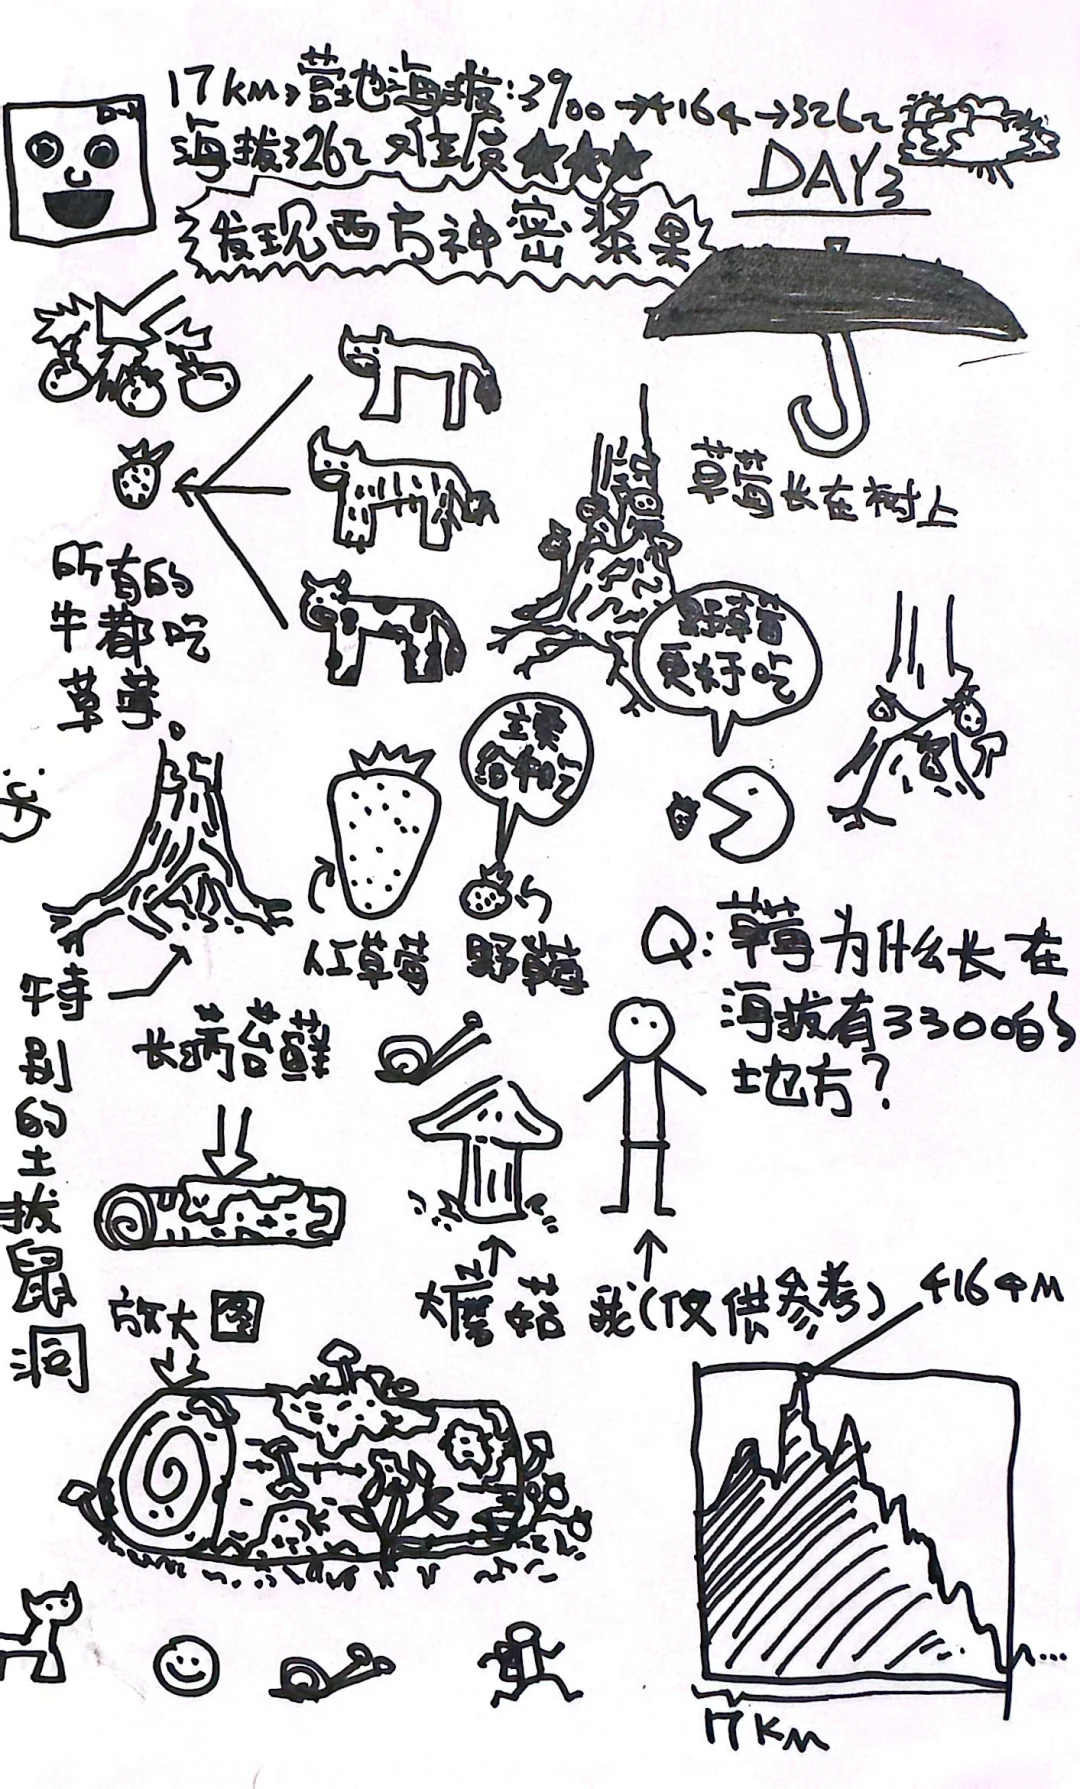 17km,营地海拔:3900→4164→3262
海拔3262 难度★★★
DAY3
发现西方神密浆果
草莓长在树上
所有的
牛都吃
草莓。
野草莓
更好吃
主要
给牛吃
红草莓
野草莓
Q:草莓为什么长在
海拔有3300的
地方?
特别的土拔鼠洞
长满苔藓
大蘑菇
我(仅供参考)
放大图
4164M
17KM